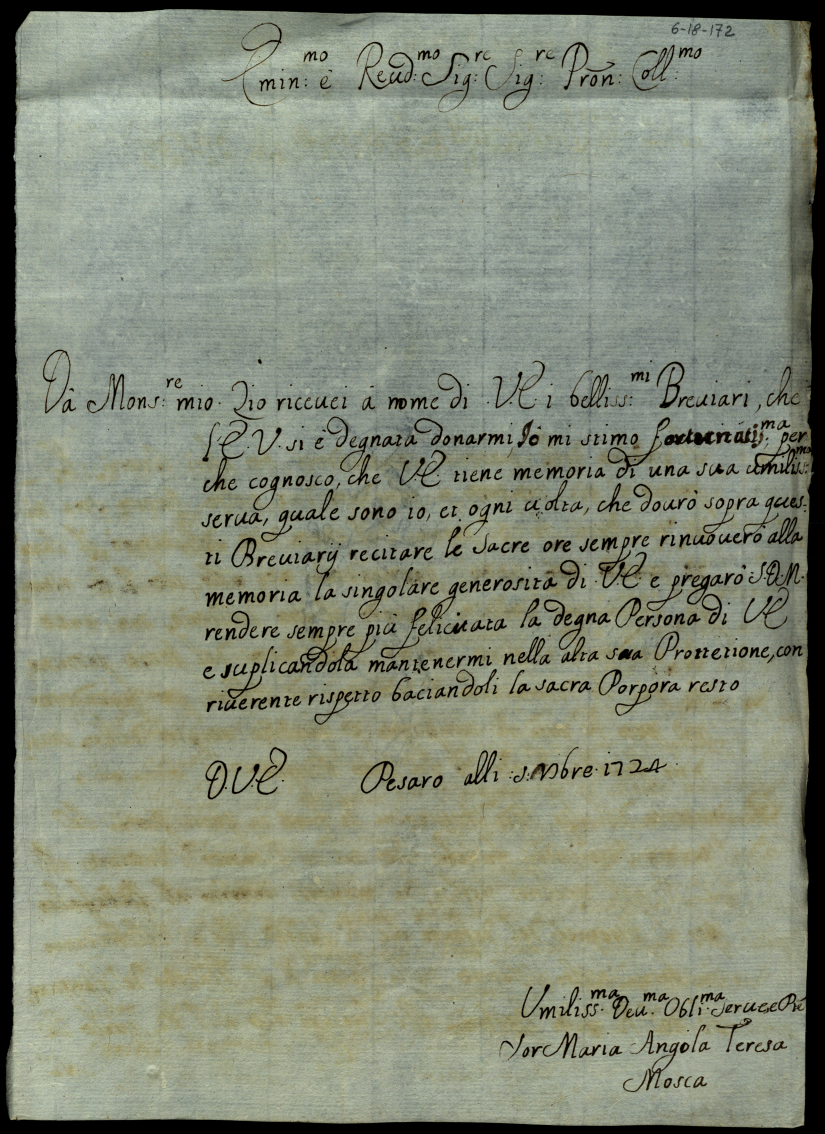 6-18-172
Emin:mo e Reud:mo Sig:re Sig:re Pron: Coll:mo
Dà Mons:re mio Zio riceuei à nome di V.E. i belliss:mi Breuiari, che
l'E.V. si è degnata donarmi, Io mi stimo fortunatis:ma per
che cognosco, che V.E. tiene memoria di una sua umilis:ma
serua, quale sono io, et ogni uolta, che dourò sopra ques-
ti Breuiarij recitare le sacre ore sempre rinuouerò alla
memoria la singolare generosità di V.E. e pregarò S.D.M.
rendere sempre più felicitata la degna Persona di V.E.
e suplicandola mantenermi nella alta sua Prottetione, con
riuerente rispetto baciandoli la sacra Porpora resto
D.V.E. Pesaro alli :5: 1724
Umiliss:ma Deu:ma Obli:ma
Sor Maria Angola Teresa
Mosca